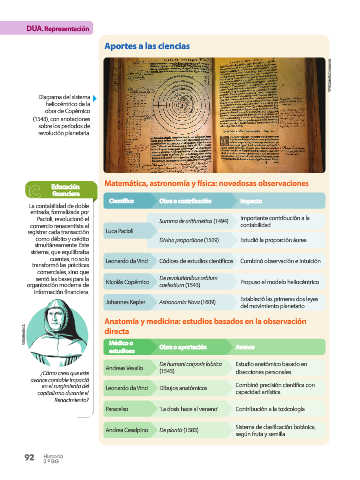 DUA. Representación
Aportes a las ciencias
Diagrama del sistema
heliocéntrico de la
obra de Copérnico
(1543), con anotaciones
sobre los períodos de
revolución planetaria.
Matemática, astronomía y física: novedosas observaciones
Científico Obra o contribución Impacto
Luca Pacioli
Summa de arithmetica (1494) Importante contribución a la
contabilidad
Divina proportione (1509) Estudió la proporción áurea
Leonardo da Vinci Códices de estudios científicos Combinó observación e intuición
Nicolás Copérnico De revolutionibus orbium
coelestium (1543) Propuso el modelo heliocéntrico
Johannes Kepler Astronomia Nova (1609) Estableció las primeras dos leyes
del movimiento planetario
Anatomía y medicina: estudios basados en la observación
directa
Médico o
estudioso Obra o aportación Avance
Andreas Vesalio De humani corporis fabrica
(1543) Estudio anatómico basado en
disecciones personales
Leonardo da Vinci Dibujos anatómicos Combinó precisión científica con
capacidad artística
Paracelso "La dosis hace el veneno" Contribución a la toxicología
Andrea Cesalpino De plantis (1583) Sistema de clasificación botánica,
según fruta y semilla
Educación
financiera
La contabilidad de doble
entrada, formalizada por
Pacioli, revolucionó el
comercio renacentista al
registrar cada transacción
como débito y crédito
simultáneamente. Este
sistema, que equilibraba
cuentas, no solo
transformó las prácticas
comerciales, sino que
sentó las bases para la
organización moderna de
información financiera.
¿Cómo crees que este
avance contable impactó
en el surgimiento del
capitalismo durante el
Renacimiento?
92 Historia